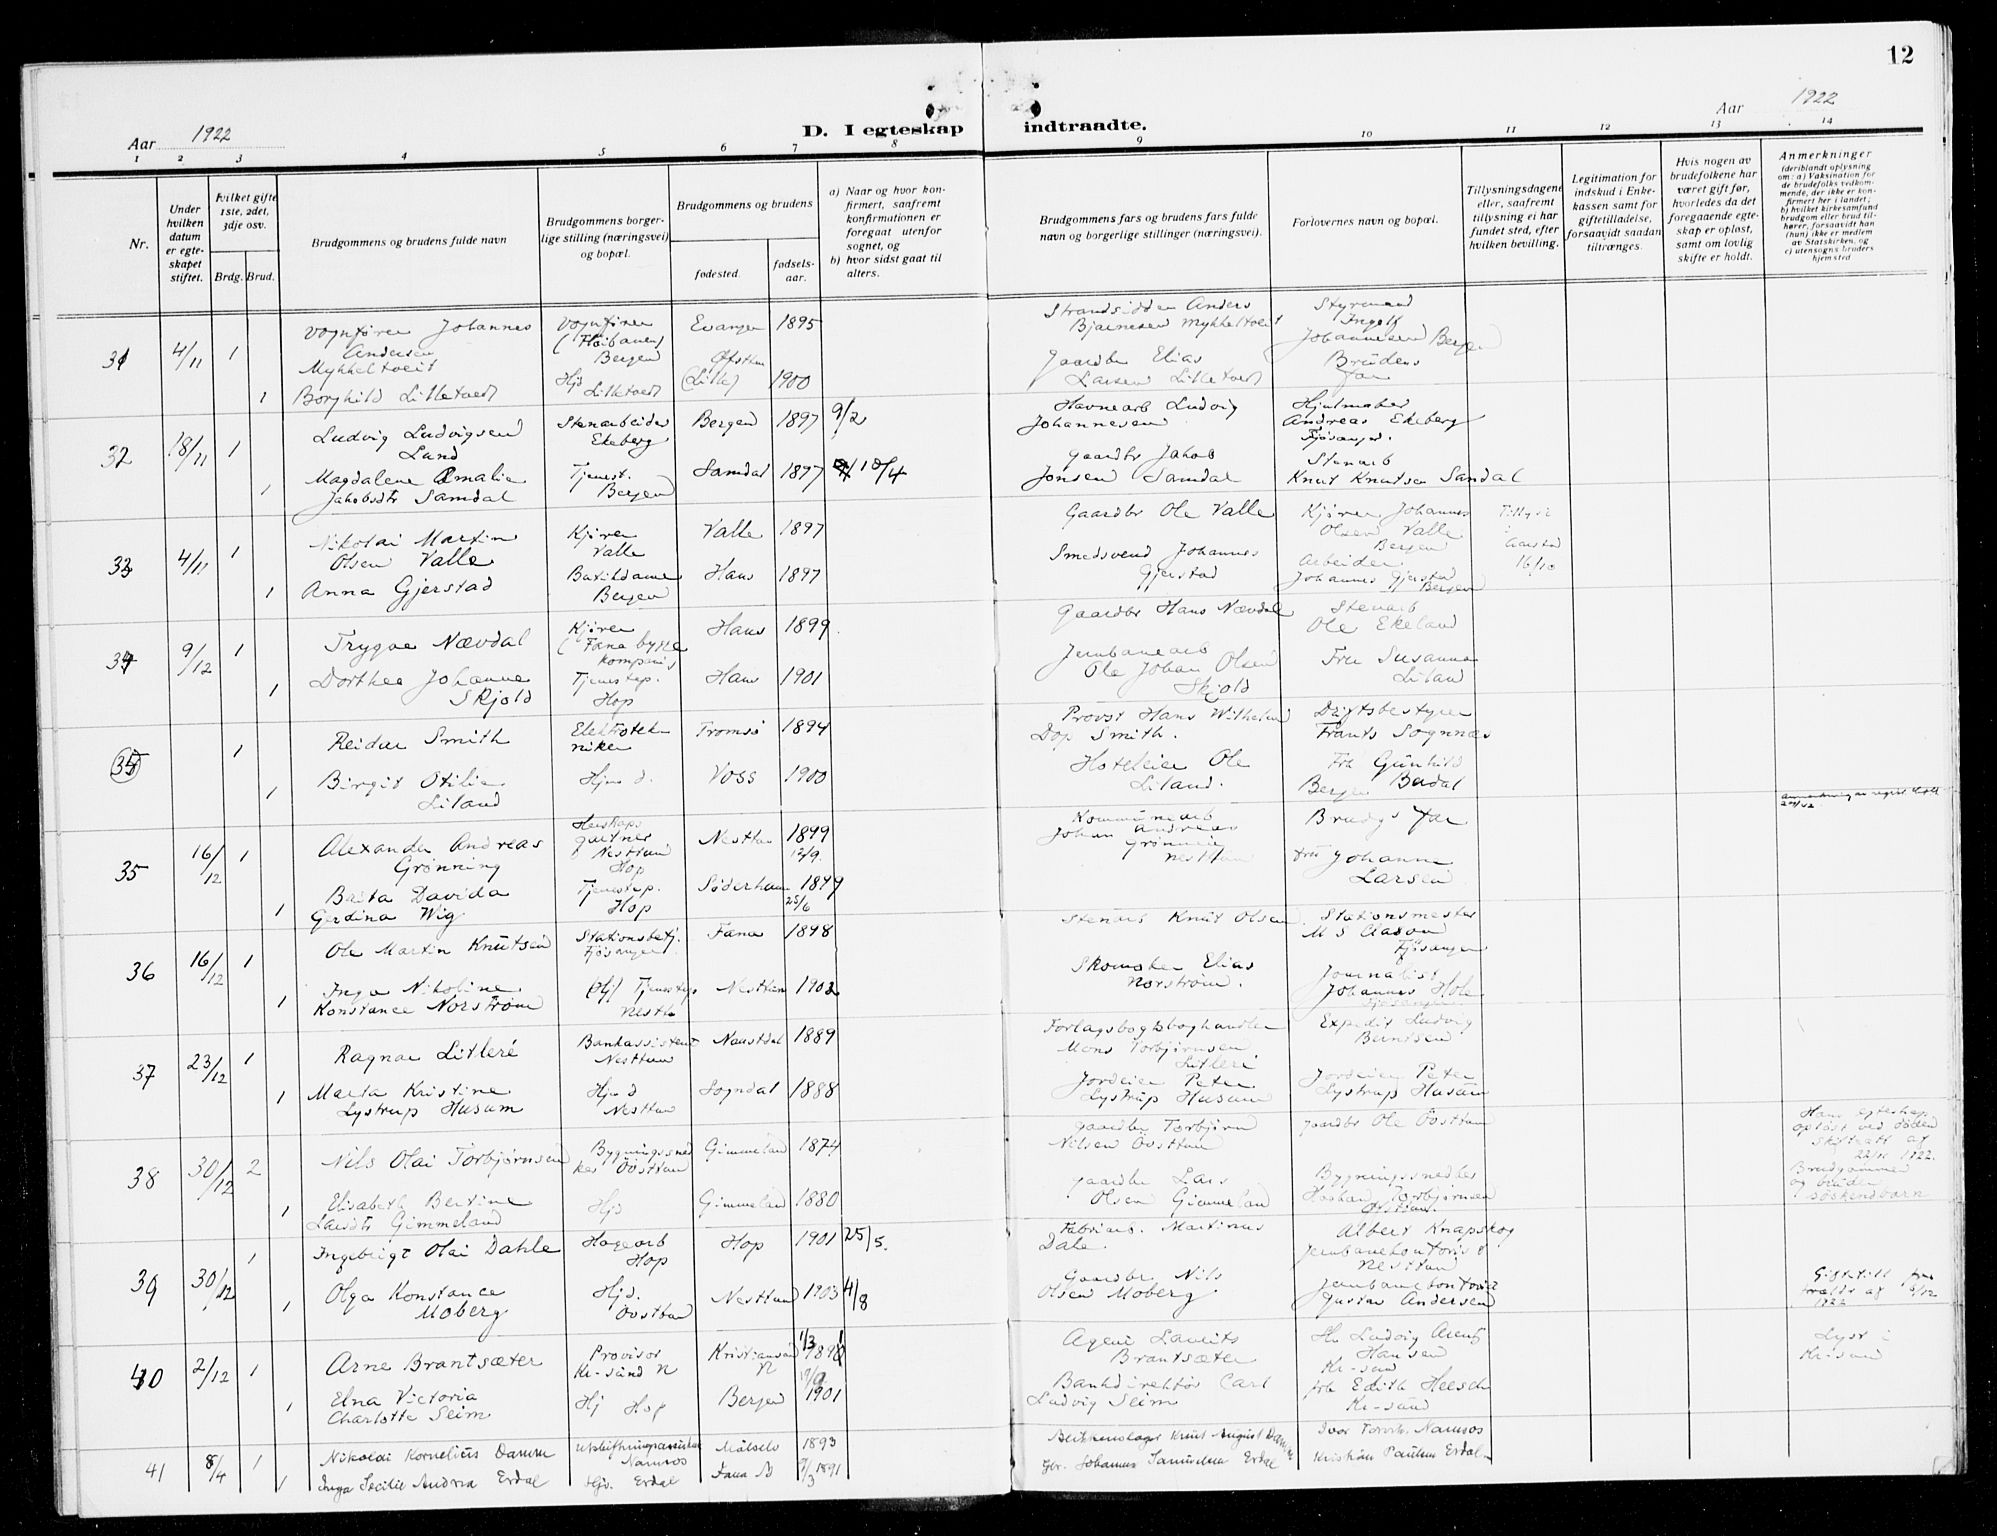 12
Aar 1922
D. I egteskap indtraadte.
Aar 1922
1 2 3 4 5 6 7 8 9 10 11 12 13 14
Nr.
Under hvilken datum er egteskapet stiftet.
hvilket gifte 1ste, 2det, 3dje osv.
Brdg. Brud.
Brudgommens og brudens fulde navn
Brudgommens borgerlige stilling (næringsvei) og bopæl.
Brudgommens og brudens
fødested.
fødselsaar.
a) Naar og hvor konfirmert, saafremt konfirmationen er foregaat utenfor sognet, og
b) hvor sidst gaat til alters.
Brudgommens fars og brudens fars fulde navn og borgerlige stillinger (næringsvei).
Forlovernes navn og bopæl.
Tillysningsdagene eller, saafremt tillysning ei har fundet sted, efter hvilken bevilling.
Legitimation for indskud i Enkekassen samt for giftetilladelse, forsaavidt saadan tiltrænges.
Hvis nogen av brudefolkene har været gift før, hvorledes da det foregaaende egteskap er opløst, samt om lovlig skifte er holdt.
Anmerkninger
(deriblandt oplysning om: a) Vaksination for de brudefolks vedkommende, der ikke er konfirmert her i landet; b) hvilket kirkesamfund brudgom eller brud tilhører, forsaavidt han (hun) ikke er medlem av Statskirken, og c) utensogns bruders hjemsted
31 4/11 1 Vognfører Johannes Andersen Mykkeltveit
Vognfører (Fløibanen) Bergen
Evanger 1895
Strandsidder Anders Bjarnesen Mykkeltveit
Styrmand Ingolf Johannessen Bergen
1 Borghild Lilletvedt
Hjs Lilletvedt
Øststun (Lille) 1900
Gaardbr Elias Larsen Lilletvedt
Brudens far
32 18/11 1 Ludvig Ludvigsen Lund
Stenarbeider Ekeberg
Bergen 1897 9/2
Havnearb Ludvig Johannesen
Hjulmaker Andreas Ekeberg Fjøsanger.
1 Magdalene Amalie Jakobsdtr Samdal
Tjenest. Bergen
Samdal 1897 10/4
Gaardbr Jakob Jonsen Samdal
Stenarb Knut Knutsen Sandal
33 4/11 1 Nikolai Martin Olsen Valle
Kjører Valle
Valle 1897
Gaardbr Ole Valle
Kjører Johannes Olsen Valle Bergen
Tillyst i Aarstad 16/10
1 Anna Gjerstad
Butikdame Bergen
Haus 1897
Smedsvend Johannes Gjerstad
Arbeider Johannes Gjerstad Bergen
34 9/12 1 Trygve Nævdal
Kjører (Fana bygge kompani)
Haus 1899
Gaardbr Hans Nævdal
Stenarb Ole Ekeland
1 Dorthea Johanne Skjold
Tjenestep. Hop
Haus 1901
Jernbanearb Ole Johan Olsen Skjold
Fru Susanna Liland
35 1 Reidar Smith
Elektrotekniker
Tromsø 1894
Provst Hans Wilhelm Dop Smith.
Driftsbestyrer Frants Sognnæs
1 Birgit Otilie Liland
Hjm d.
Voss 1900
Hoteleier Ole Liland.
Frk Gunhild Bergen
35 16/12 1 Alexander Andreas Grønning
Herskapsgartner Nesttun Hop
Nesttun 1899 12/9.
Kommunearb Johan Andreas Grønning Nesttun
Brudgs far
1 Berta Davida Gerdina Wig
Tjenestep. Hop
Søderham 1899 25/6
Fru Johanne Larsen
36 16/12 1 Ole Martin Knutsen
Stationsbetj. Fjøsanger
Fana 1898
Stenarb Knut Olsen
Stationsmester M S Clason Fjøsanger
1 Inga Nikoline Konstance Norstrøm
Tjenestep Nestt.
Nesttun 1902
Skomaker Elias Norstrøm.
Journalist Johannes Hole Fjøsanger
37 23/12 1 Ragnar Litleré
Bankassistent Nesttun
Naustdal 1889
Forlagsboghandler Mons Torbjørnsen Litleré
Expedit Ludvig Berntsen
1 Marta Kristine Lystrup Husum
Hjm d Nesttun
Sogndal 1888
Jordeier Peter Lystrup Husum
Jordeier Peter Lystrup Husum
38 30/12 2 Nils Olai Torbjørnsen
Bygningssnedker Øvsttun
Gimmeland 1874
Gaardbr Torbjørn Nilsen Øvsttun
Gaardbr Ole Øvsttun
Hans egteskap opløst ved døden skifteatt af 22/11 1922. Brudgommen og bruden søskendbarn
1 Elisabeth Bertine Larsdtr Gimmeland
Hjs
Gimmeland 1880
Gaardbr Lars Olsen Gimmeland
Bygningssnedker Torbjørnsen Øvsttun.
39 30/12 1 Ingebrigt Olai Dahle
Hagearb Hop
Hop 1901 25/5.
Fabrikarb. Martinus Dale.
Albert Knapskog Jernbanekontorist Nesttun
1 Olga Konstance Moberg
Hjs. Øvsttun
Nesttun 1903 4/8
Gaardbr Nils Olsen Moberg
Jernbanekontorist Gustav Andersen
Giftetill fra forældr af 6/12 1922
40 2/12 1 Arne Brantsæter
Provisor Kr-sund N
Kristiansund N 1/3 1890
Agent Laurits Brantsæter
Hr Ludvig Arent Hansen Kr-sund
Lyst i Kr-sund
1 Elna Victoria Charlotte Seim
Hj Hop
Bergen 19/9 1901
Bankdirektør Carl Ludvig Seim
Frk Edith Heesch Kr-sund
41 8/4 1 Nikolai Kornelius Damm
Namsos
Målselv 1893
Blikkenslager Knut August Damm
Ivar Namsos
1 Inga Secilie Andrea Erdal
Hjs. Erdal
Fana 9/3 1891
Gbr. Johannes Samuelsen Erdal
Kristian Paulsen Erdal